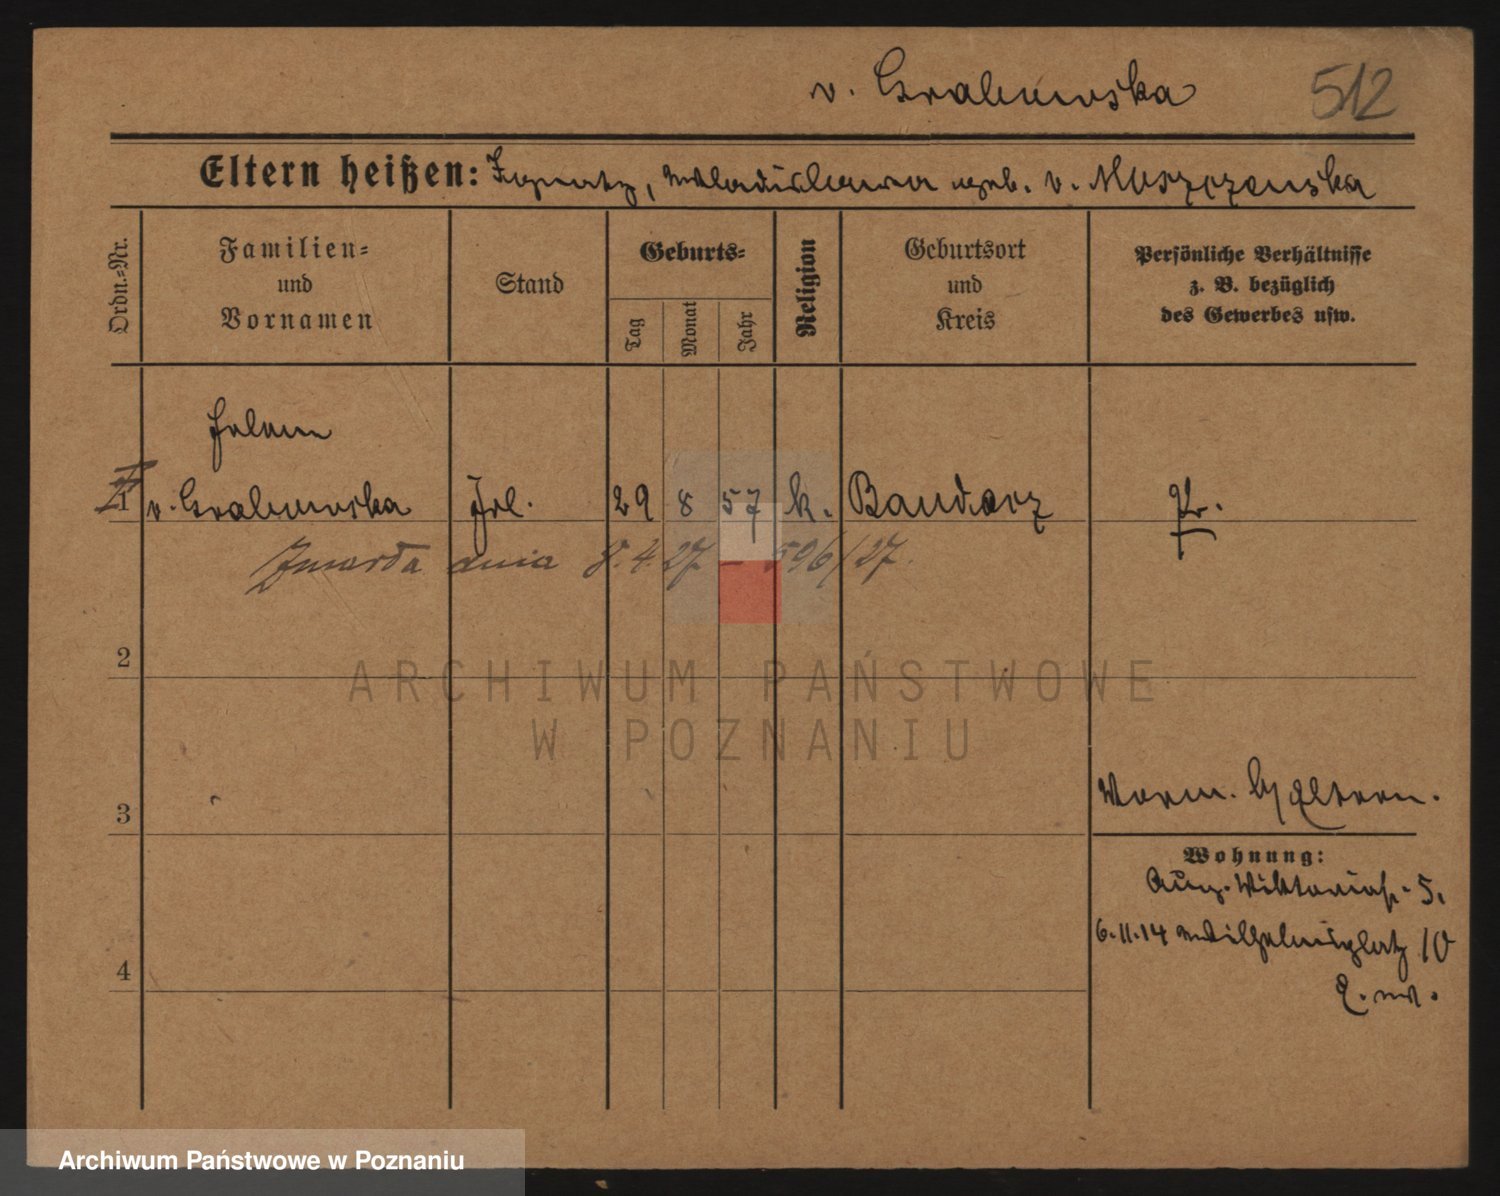 v. Grabowska 512
Eltern heißen: Ignatz, Wladislawa geb. v. Moszczenska
Ordn.-Nr.
Familien-
und
Vornamen
Stand
Geburts-
Tag
Monat
Jahr
Religion
Geburtsort
und
Kreis
Persönliche Verhältnisse
z. B. bezüglich
des Gewerbes usw.
Helene
1 v. Grabowska Frl. 29 8 57 k. Bandorz Pr.
Zmarła dnia 8.4.27 – 596/27.
2
ARCHIWUM PAŃSTWOWE
W POZNANIU
3
Verm. b/ Eltern.
Wohnung:
Aug. Viktoriastr. 5.
6.11.14 Wilhelmsplatz 10
4
E. W.
Archiwum Państwowe w Poznaniu